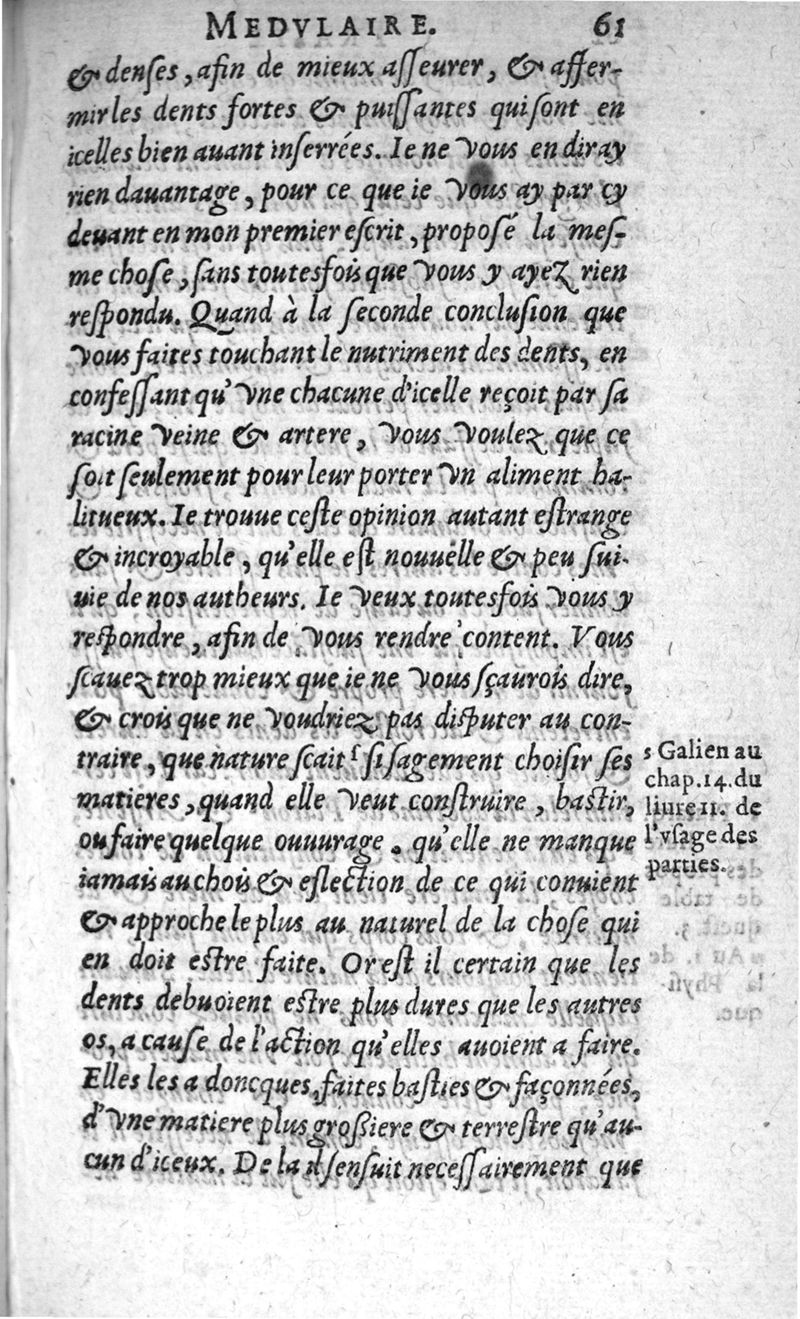 MEDVLAIRE. 61
& denſes, afin de mieux aſſeurer, & affer-
mir les dents fortes & puiſſantes qui ſont en
icelles bien auant inſerrées. Ie ne vous en diray
rien dauantage, pour ce que ie vous ay par cy
deuant en mon premier eſcrit, propoſé la meſ-
me choſe, ſans toutesfois que vous y ayez rien
reſpondu. Quand à la ſeconde concluſion que
vous faites touchant le nutriment des dents, en
confeſſant qu'vne chacune d'icelle reçoit par ſa
racine veine & artere, vous voulez que ce
ſoit ſeulement pour leur porter vn aliment ha-
litueux. Ie trouue ceſte opinion autant eſtrange
& incroyable, qu'elle eſt nouuëlle & peu ſui-
uie de nos autheurs. Ie veux toutesfois vous y
reſpondre, afin de vous rendre content. Vous
ſcauez trop mieux que ie ne vous ſçaurois dire,
& crois que ne voudriez pas diſputer au con-
traire, que nature ſcait ſ ſi ſagement choiſir ſes
matieres, quand elle veut conſtruire, baſtir,
ou faire quelque ouuurage. qu'elle ne manque
iamais au chois & eſlection de ce qui conuient
& approche le plus au naturel de la choſe qui
en doit eſtre faite. Or eſt il certain que les
dents debuoient eſtre plus dures que les autres
os, a cauſe de l'action qu'elles auoient a faire.
Elles les a doncques, faites baſties & façonnées,
d'vne matiere plus groſſiere & terreſtre qu'au-
cun d'iceux. De la il ſenſuit neceſſairement que
s Galien au
chap. 14. du
liure 11. de
l'vſage des
parties.